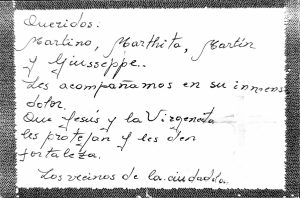 Queridos:
Martino, Marthita, Martín
y Giusseppe..
Les acompañamos en su inmenso
dolor.
Que Jesús y la Virgencita
les protejan y les den
fortaleza.
Los vecinos de la ciudadela.